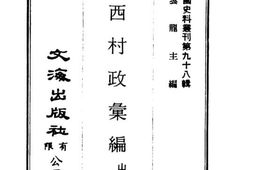 國史料叢刊第九十八輯
雲龍主編
西村政彙編
出
文海出版社
有限
公